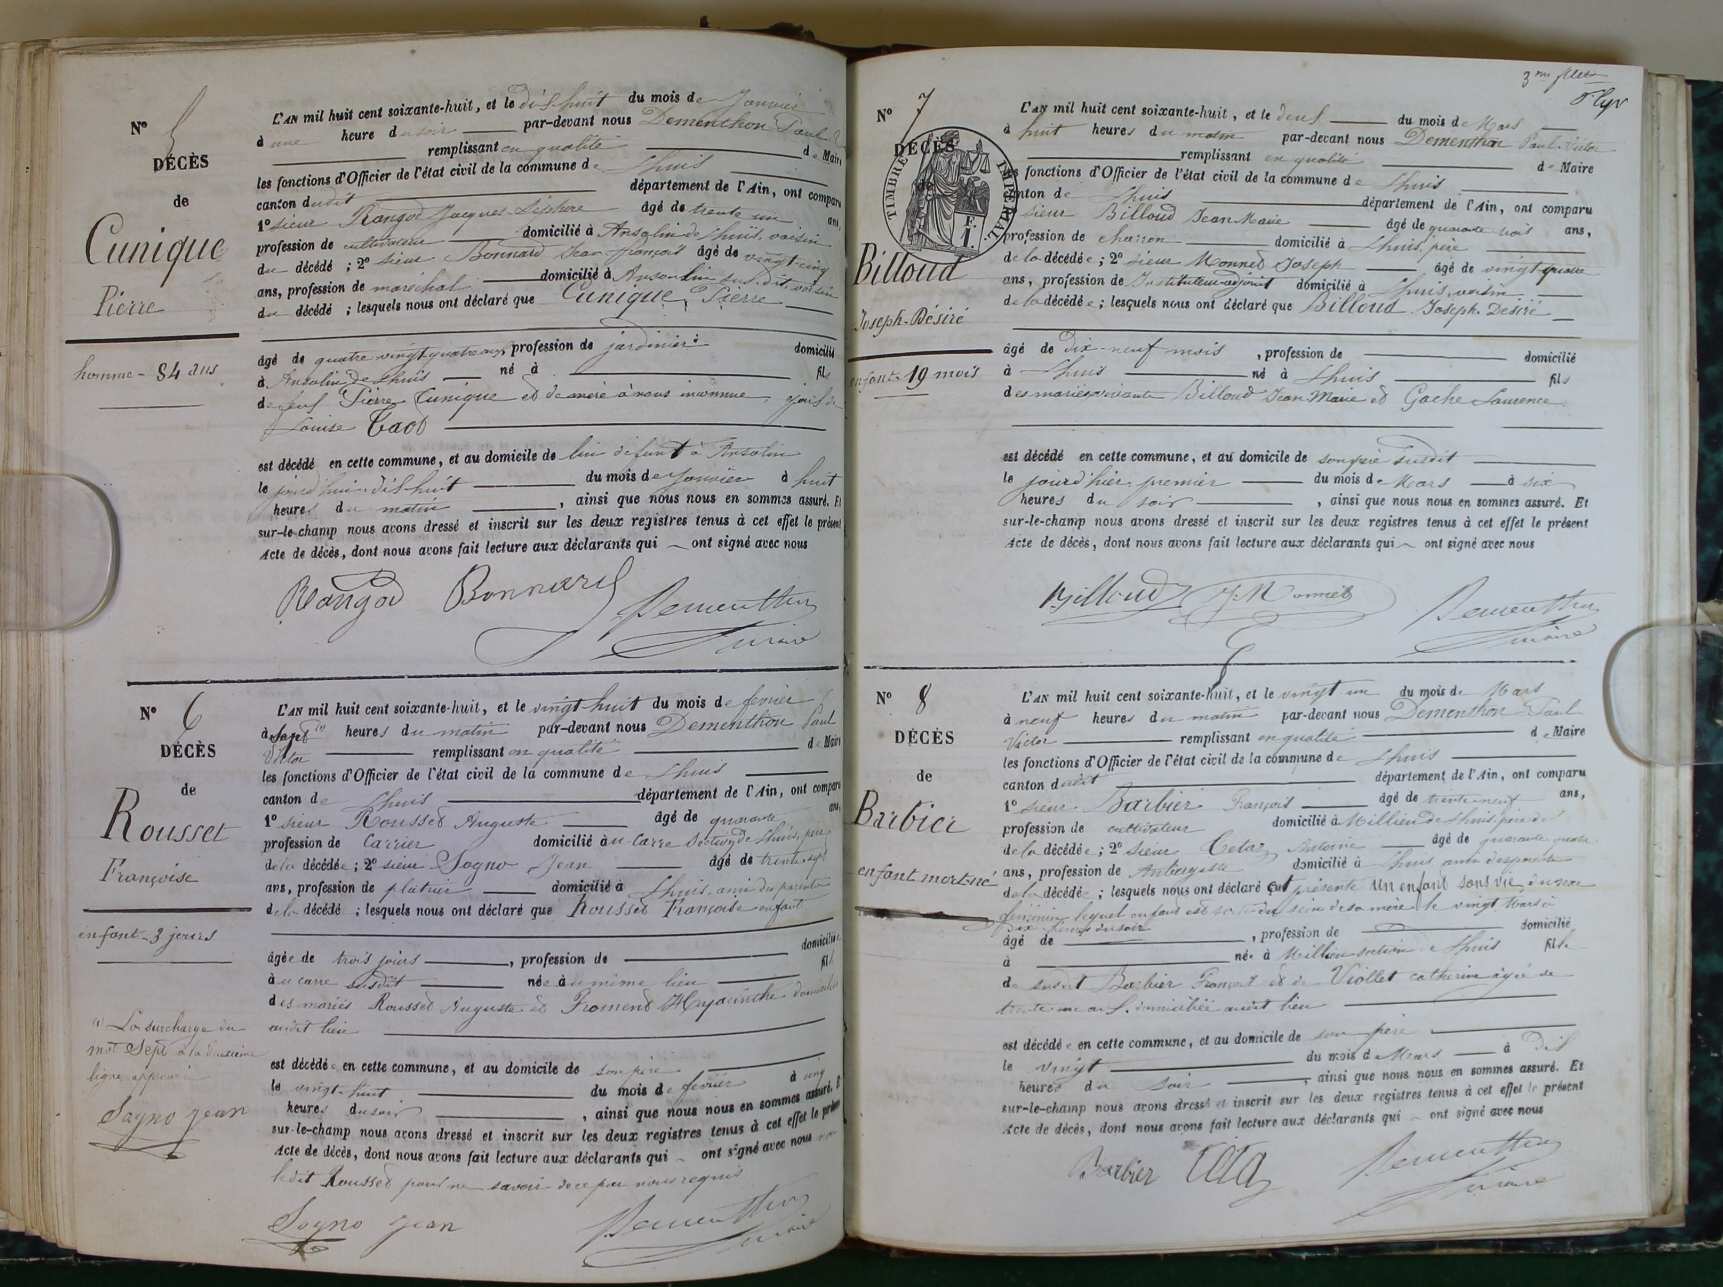 N° 5
DÉCÈS
de
Cunique
Pierre
homme - 84 ans
L'AN mil huit cent soixante-huit, et le dix huit du mois de Janvier
à une heure du soir par-devant nous Dementhon Paul
remplissant en qualité de Maire
les fonctions d'Officier de l'état civil de la commune de Lhuis
canton dudit département de l'Ain, ont comparu
1° sieur Rangod Jacques âgé de trente un ans,
profession de cultivateur domicilié à Ansolin de Lhuis, voisin
du décédé ; 2° sieur Bonnard Jean François âgé de vingt cinq
ans, profession de maréchal domicilié à Ansolin sus dit, voisin
du décédé ; lesquels nous ont déclaré que Cunique, Pierre
âgé de quatre vingt quatre ans, profession de jardinier domicilié
à Ansolin de Lhuis né à fils
de feu Pierre Cunique et de mère à nous inconnue,
Louise
est décédé en cette commune, et au domicile de lui défunt à Ansolin
le jourd'hui dix huit du mois de Janvier à huit
heures du matin, ainsi que nous nous en sommes assuré. Et
sur-le-champ nous avons dressé et inscrit sur les deux registres tenus à cet effet le présent
Acte de décès, dont nous avons fait lecture aux déclarants qui ont signé avec nous
Rangod Bonnard Dementhon
maire
N° 6
DÉCÈS
de
Rousset
Françoise
enfant - 3 jours
L'AN mil huit cent soixante-huit, et le vingt huit du mois de fevrier
à Sept heures du matin par-devant nous Dementhon Paul
Victor remplissant en qualité de Maire
les fonctions d'Officier de l'état civil de la commune de Lhuis
canton de Lhuis département de l'Ain, ont comparu
1° sieur Rousset Auguste âgé de quarante ans,
profession de Carrier domicilié au Carre section de Lhuis, père
de la décédée ; 2° sieur Sogno Jean âgé de trente sept
ans, profession de platrier domicilié à Lhuis, ami des parents
de la décédé ; lesquels nous ont déclaré que Rousset Françoise enfant
âgée de trois jours, profession de domiciliée
à u carre susdit née à u même lieu fil
des mariés Rousset Auguste et Promend Hyacinthe domiciliés
audit lieu
est décédée en cette commune, et au domicile de son père
le vingt-huit du mois de février à cinq
heures du soir, ainsi que nous nous en sommes assuré. Et
sur-le-champ nous avons dressé et inscrit sur les deux registres tenus à cet effet le présent
Acte de décès, dont nous avons fait lecture aux déclarants qui ont signé avec nous non
ledit Rousset pour ne savoir de ce par nous requis
(1) La surcharge du
mot Sept à la deuxième
ligne approuvé
Sogno Jean
Sogno Jean Dementhon
maire
3me feuillet
N° 7
DÉCÈS
de
TIMBRE IMPÉRIAL
F. 1.
Billoud
Joseph-Désiré
enfant 19 mois
L'AN mil huit cent soixante-huit, et le deux du mois de Mars
à huit heures du matin par-devant nous Dementhon Paul-Victor
remplissant en qualité de Maire
les fonctions d'Officier de l'état civil de la commune de Lhuis
canton de Lhuis département de l'Ain, ont comparu
sieur Billoud Jean Marie âgé de quarante trois ans,
profession de charron domicilié à Lhuis, père
de la décédée ; 2° sieur Monnet Joseph âgé de vingt quatre
ans, profession de Instituteur adjoint domicilié à Lhuis, voisin
de la décédée ; lesquels nous ont déclaré que Billoud Joseph Désiré
âgé de dix-neuf mois, profession de domicilié
à Lhuis né à Lhuis fils
des mariés vivants Billoud Jean Marie et Gache Laurence
est décédé en cette commune, et au domicile de son père susdit
le jour d'hier premier du mois de Mars à six
heures du soir, ainsi que nous nous en sommes assuré. Et
sur-le-champ nous avons dressé et inscrit sur les deux registres tenus à cet effet le présent
Acte de décès, dont nous avons fait lecture aux déclarants qui ont signé avec nous
Billoud J. Monnet Dementhon
maire
N° 8
DÉCÈS
de
Barbier
enfant mort-né
L'AN mil huit cent soixante-huit, et le vingt un du mois de Mars
à neuf heures du matin par-devant nous Dementhon Paul
Victor remplissant en qualité de Maire
les fonctions d'Officier de l'état civil de la commune de Lhuis
canton dudit département de l'Ain, ont comparu
1° sieur Barbier François âgé de trente neuf ans,
profession de cultivateur domicilié à Millieu de Lhuis, père de
de la décédée ; 2° sieur Cetaz Antoine âgé de quarante quatre
ans, profession de Aubergiste domicilié à Lhuis ami des parents
de la décédé ; lesquels nous ont déclaré et présenté un enfant sans vie, du sexe
féminin lequel enfant est sorti du sein de sa mère le vingt Mars à
dix heures du soir
âgé de, profession de domicilié
à née à Millieu section de Lhuis fille
de susdit Barbier François et de Viollet Catherine âgée de
trente un ans, domiciliée audit lieu
est décédée en cette commune, et au domicile de son père
le vingt du mois de Mars à dix
heures du soir, ainsi que nous nous en sommes assuré. Et
sur-le-champ nous avons dressé et inscrit sur les deux registres tenus à cet effet le présent
Acte de décès, dont nous avons fait lecture aux déclarants qui ont signé avec nous
Barbier Cétaz Dementhon
maire